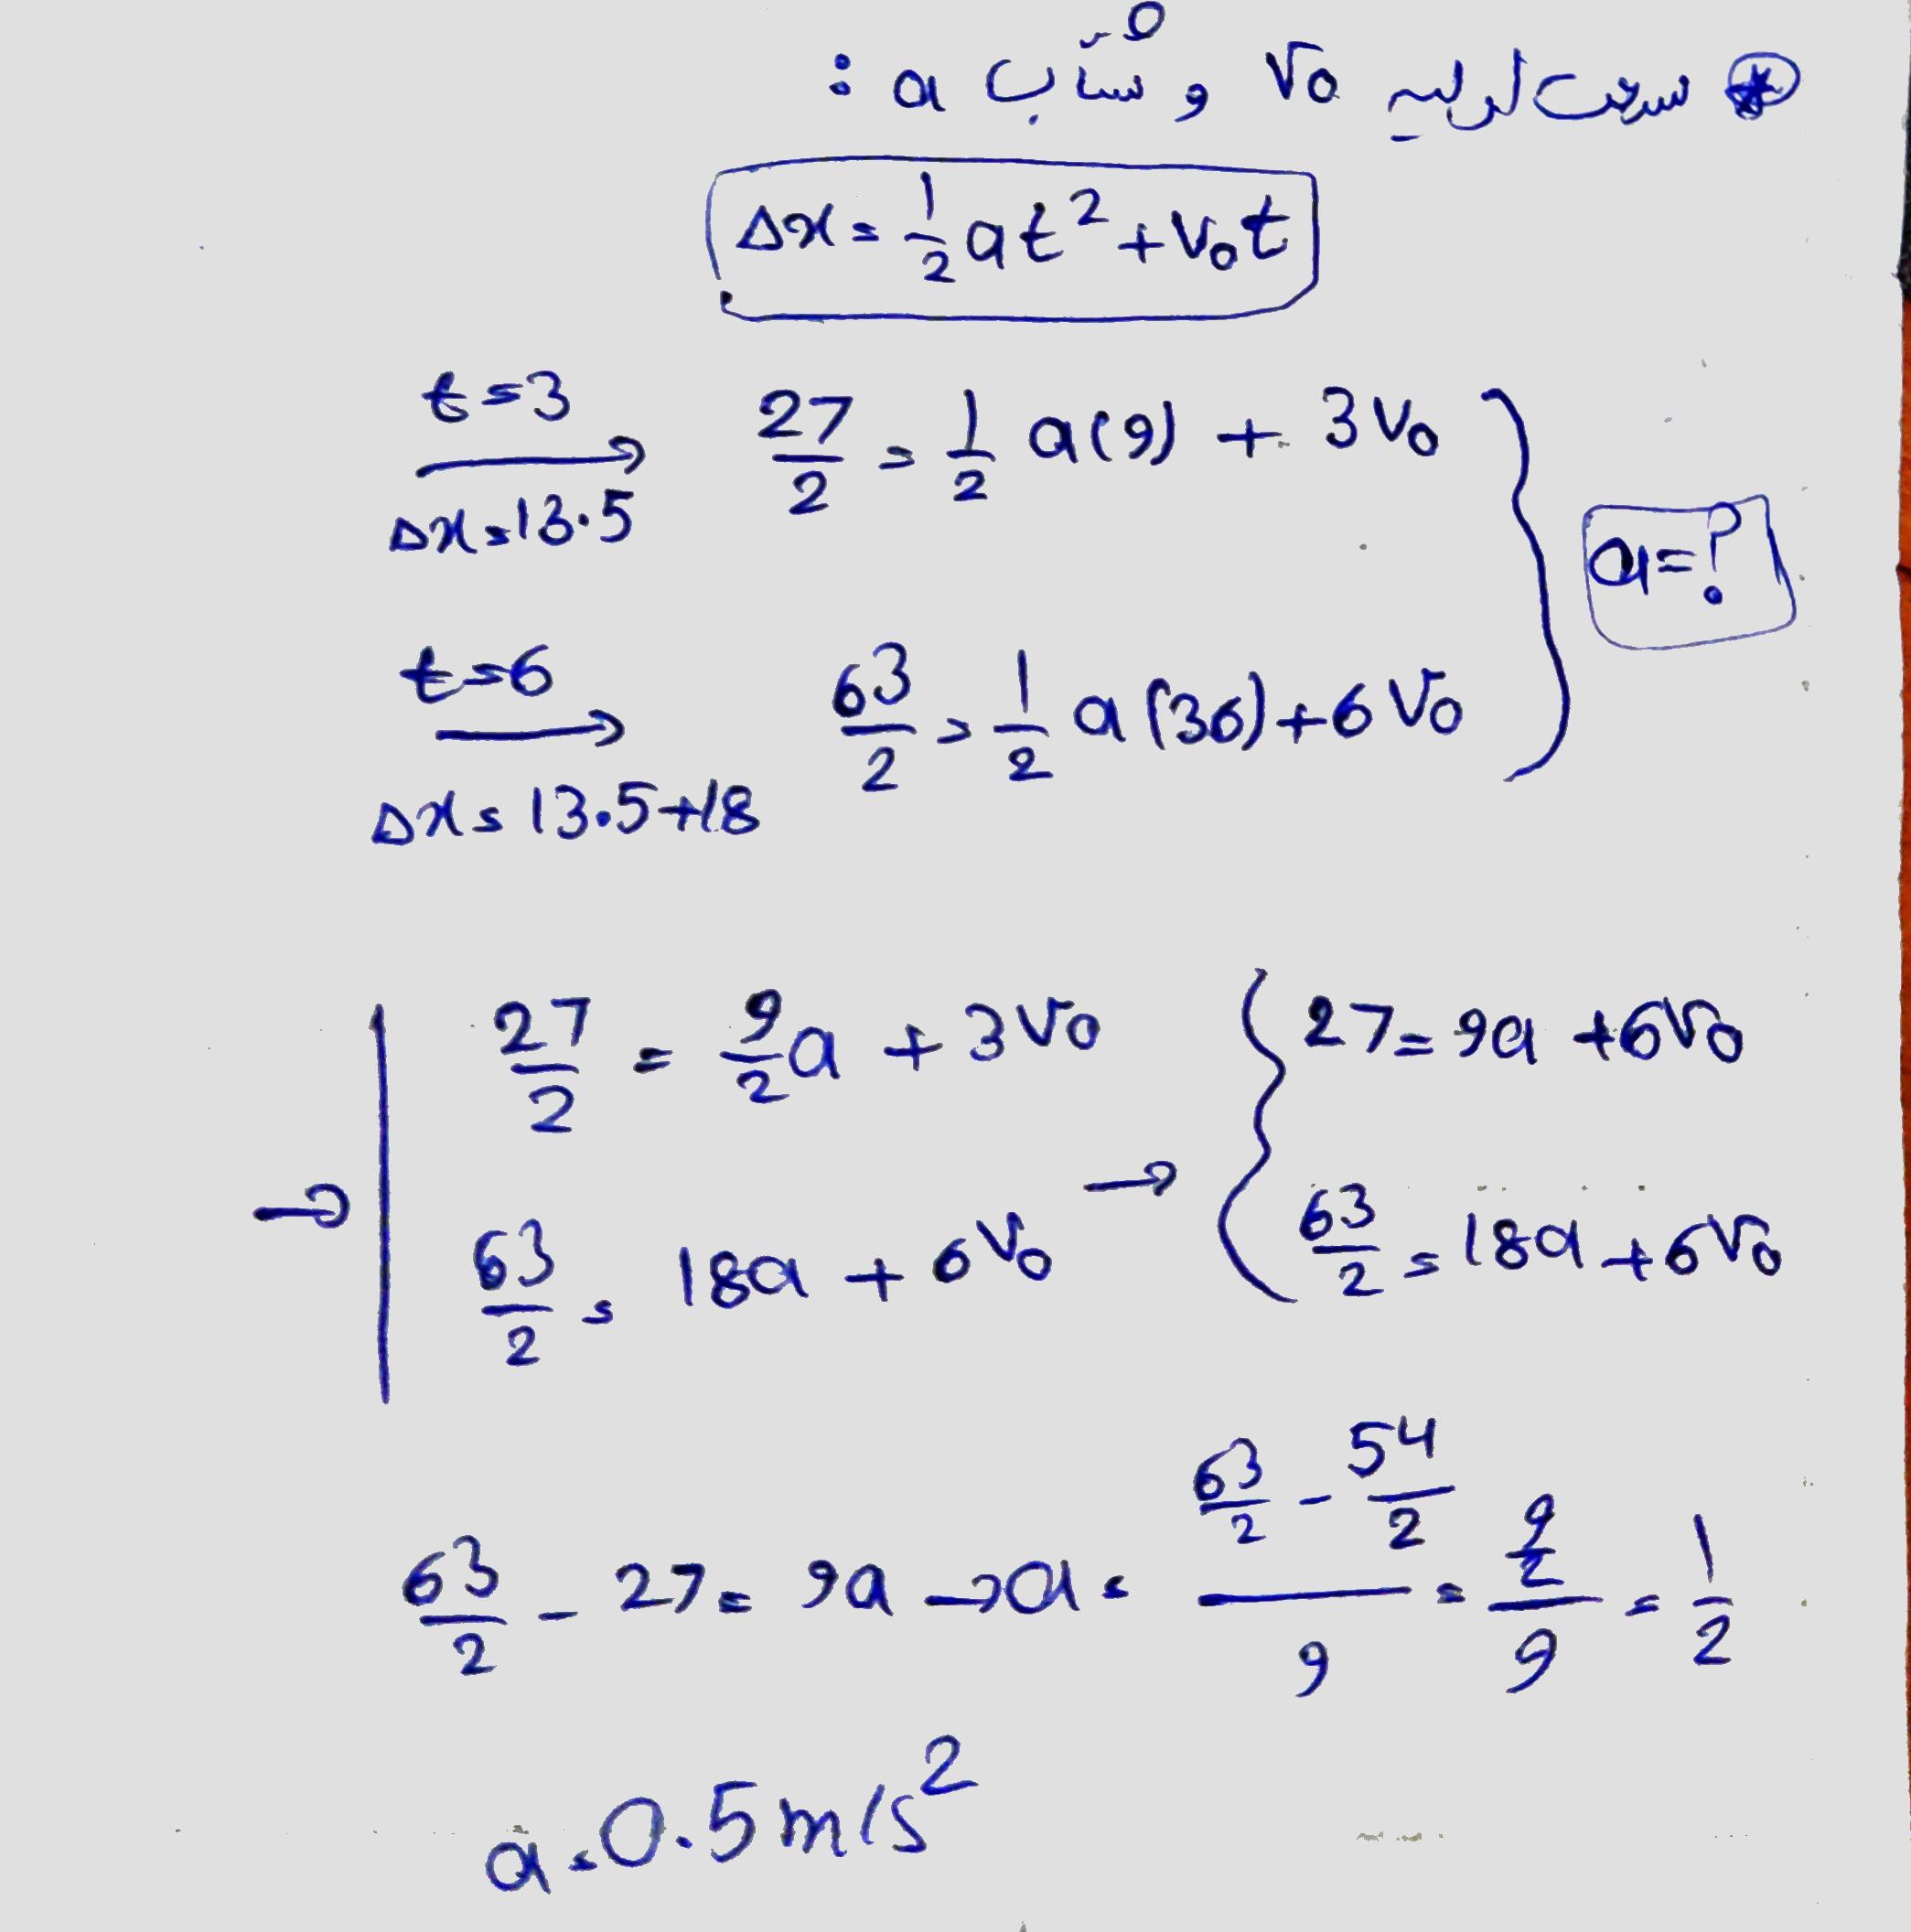 * سرعت اولیه V0 و شتاب a :
Δx = 1/2 at² + V0t
t=3
Δx=13.5
27/2 = 1/2 a(9) + 3V0
a=?
t=6
Δx=13.5+18
63/2 = 1/2 a(36)+6V0
→ 27/2 = 9/2 a + 3V0 → 27=9a+6V0
63/2 = 18a + 6V0 63/2=18a+6V0
63/2 - 27 = 9a → a = (63/2 - 54/2)/9 = (9/2)/9 = 1/2
a=0.5m/s²